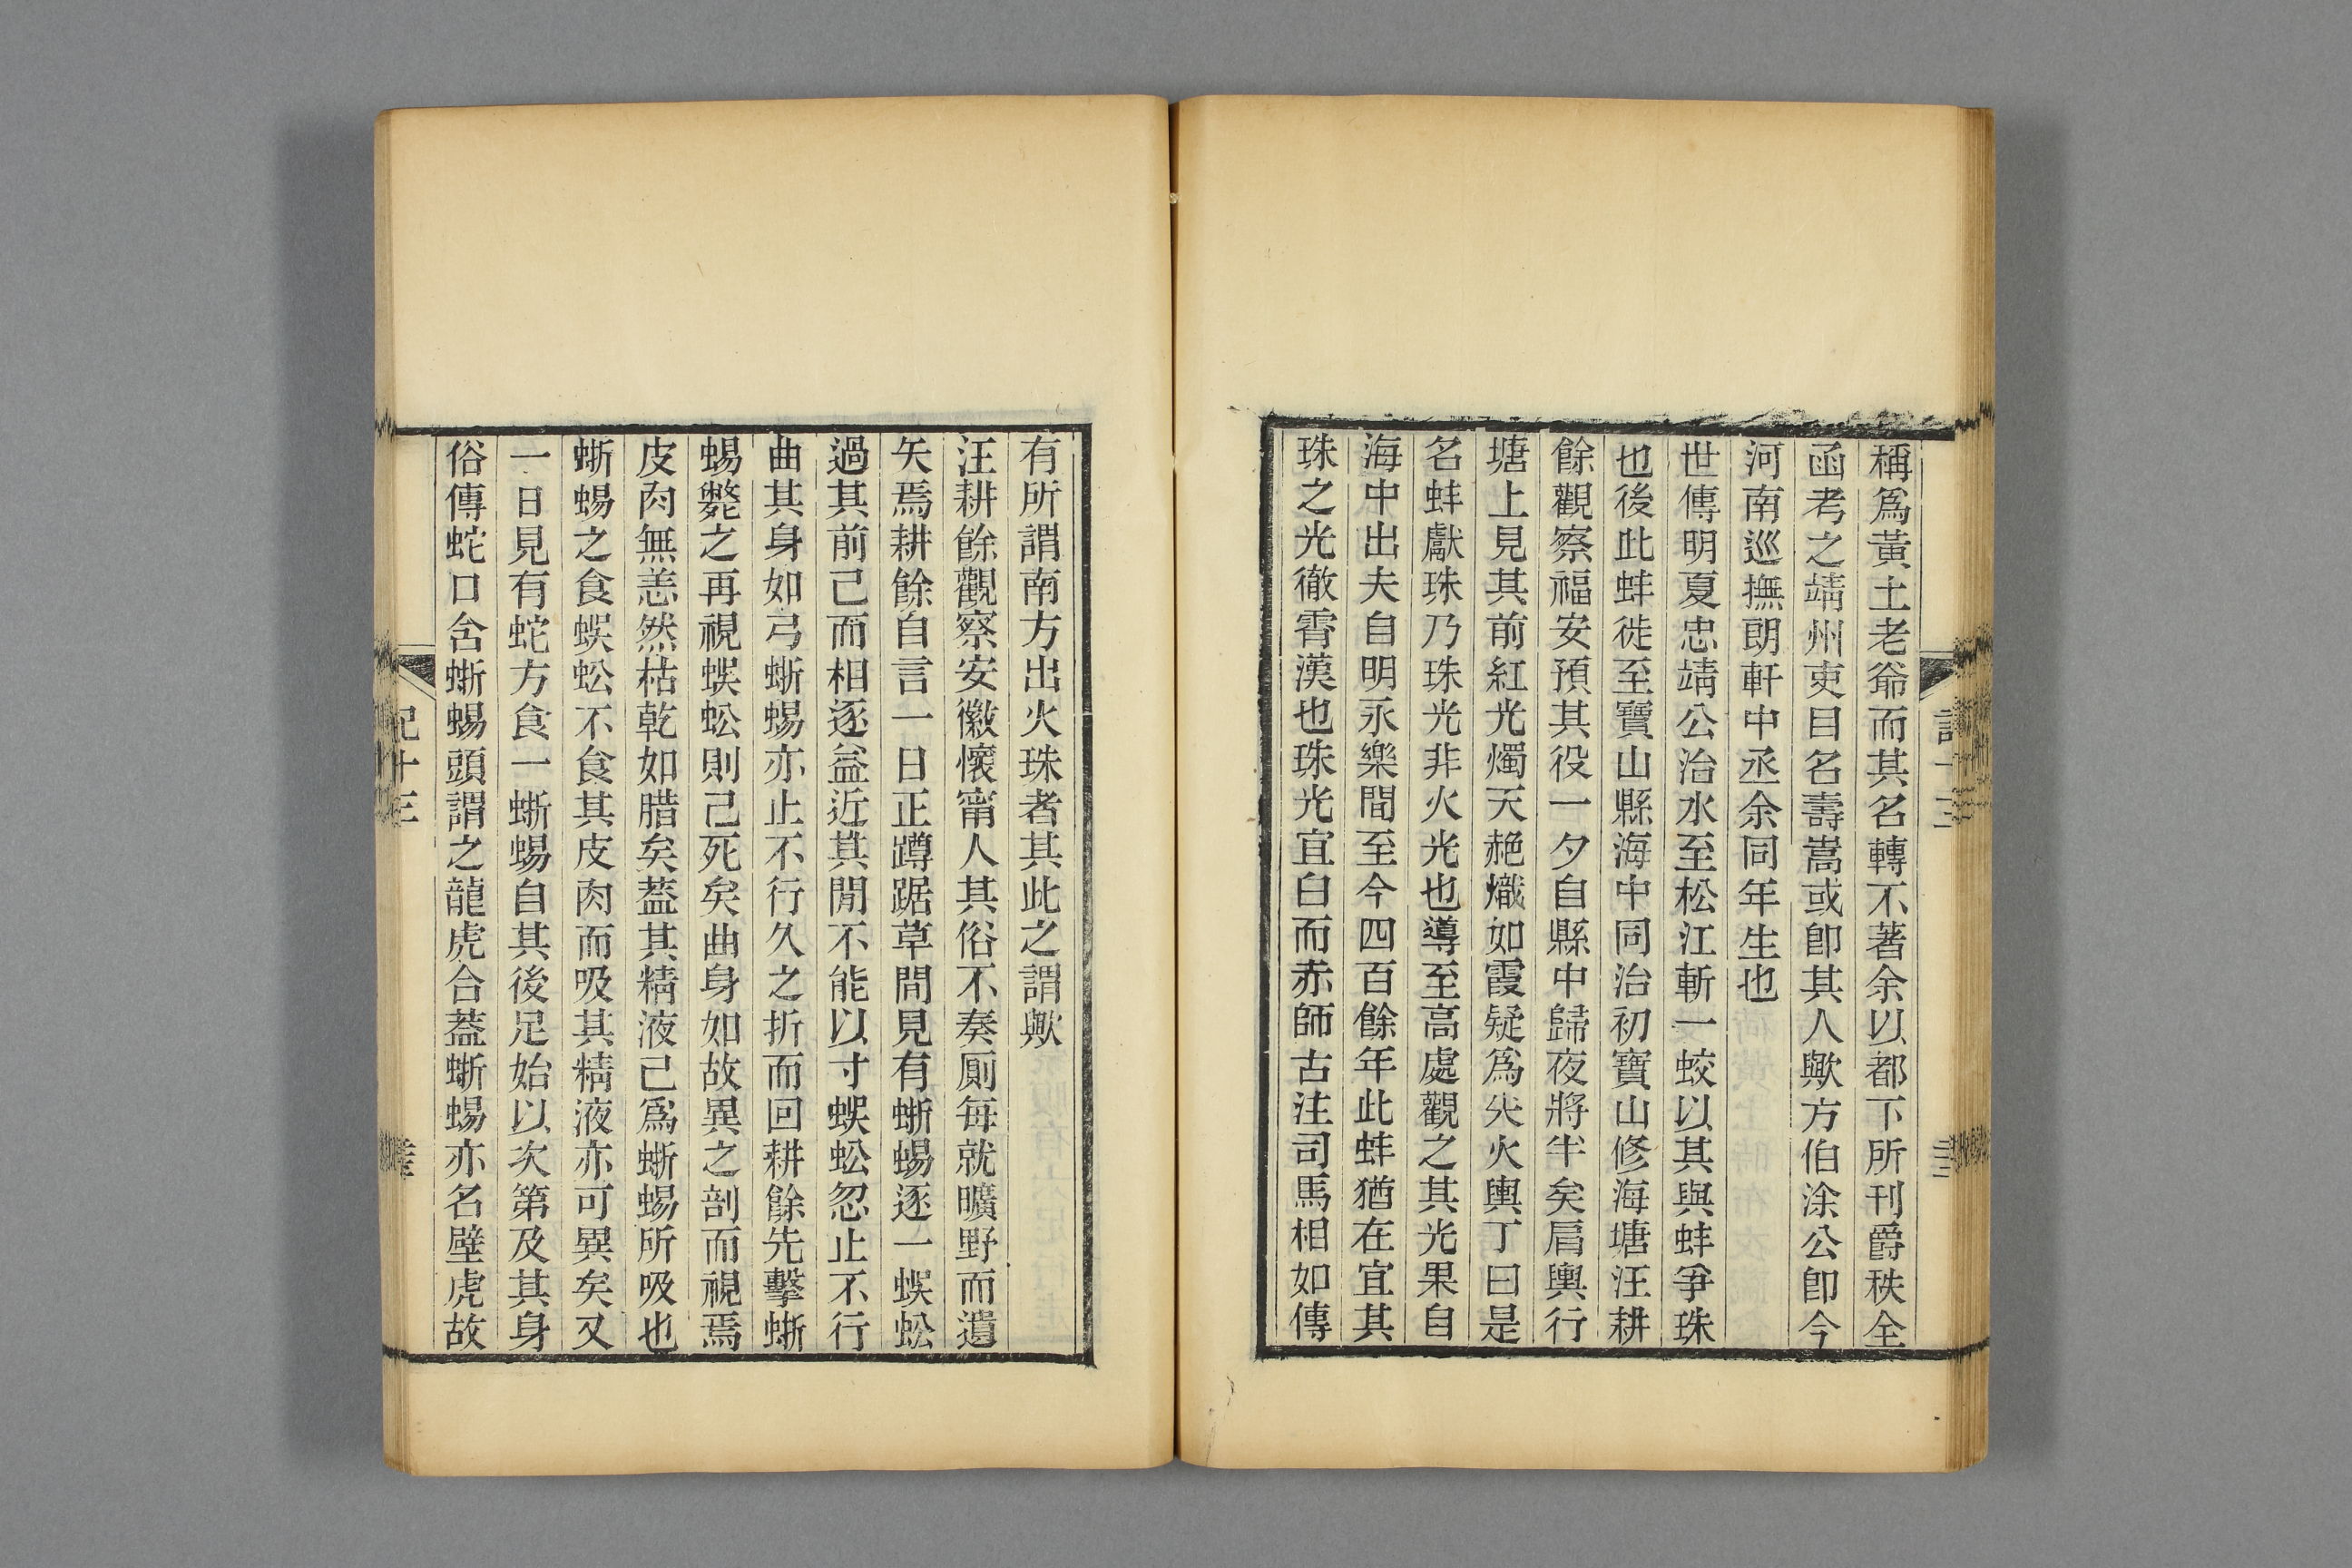 稱爲黃土老爺而其名轉不著余以都下所刊爵秩全
函考之靖州吏目名壽嵩或卽其人歟方伯涂公卽今
河南巡撫朗軒中丞余同年生也
世傳明夏忠靖公治水至松江斬一蛟以其與蚌爭珠
也後此蚌徙至寶山縣海中同治初寶山修海塘汪耕
餘觀察福安預其役一夕自縣中歸夜將半矣肩輿行
塘上見其前紅光燭天赩熾如霞疑爲失火輿丁曰是
名蚌獻珠乃珠光非火光也導至高處觀之其光果自
海中出夫自明永樂間至今四百餘年此蚌猶在宜其
珠之光徹霄漢也珠光宜白而赤師古注司馬相如傳
有所謂南方出火珠者其此之謂歟
汪耕餘觀察安徽懷甯人其俗不奏廁每就曠野而遺
矢焉耕餘自言一日正蹲踞草間見有蜥蜴逐一蜈蚣
過其前己而相逐益近其閒不能以寸蜈蚣忽止不行
曲其身如弓蜥蜴亦止不行久之折而回耕餘先擊蜥
蜴斃之再視蜈蚣則己死矣曲身如故異之剖而視焉
皮肉無恙然枯乾如腊矣葢其精液己爲蜥蜴所吸也
蜥蜴之食蜈蚣不食其皮肉而吸其精液亦可異矣又
一日見有蛇方食一蜥蜴自其後足始以次第及其身
俗傳蛇口含蜥蜴頭謂之龍虎合葢蜥蜴亦名壁虎故
記十三